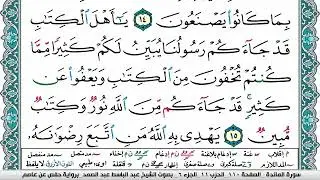 بِمَا كَانُوا۟ يَصْنَعُونَ ١٤ يَٰٓأَهْلَ ٱلْكِتَٰبِ
قَدْ جَآءَكُمْ رَسُولُنَا يُبَيِّنُ لَكُمْ كَثِيرًا مِّمَّا
كُنتُمْ تُخْفُونَ مِنَ ٱلْكِتَٰبِ وَيَعْفُوا۟ عَن
كَثِيرٍ ۚ قَدْ جَآءَكُم مِّنَ ٱللَّهِ نُورٌ وَكِتَٰبٌ
مُّبِينٌ ١٥ يَهْدِى بِهِ ٱللَّهُ مَنِ ٱتَّبَعَ رِضْوَٰنَهُۥ
سورة المائدة الصفحة ١١٠ الحزب ١١ الجزء ٦ بصوت الشيخ عبد الباسط عبد الصمد برواية حفص عن عاصم